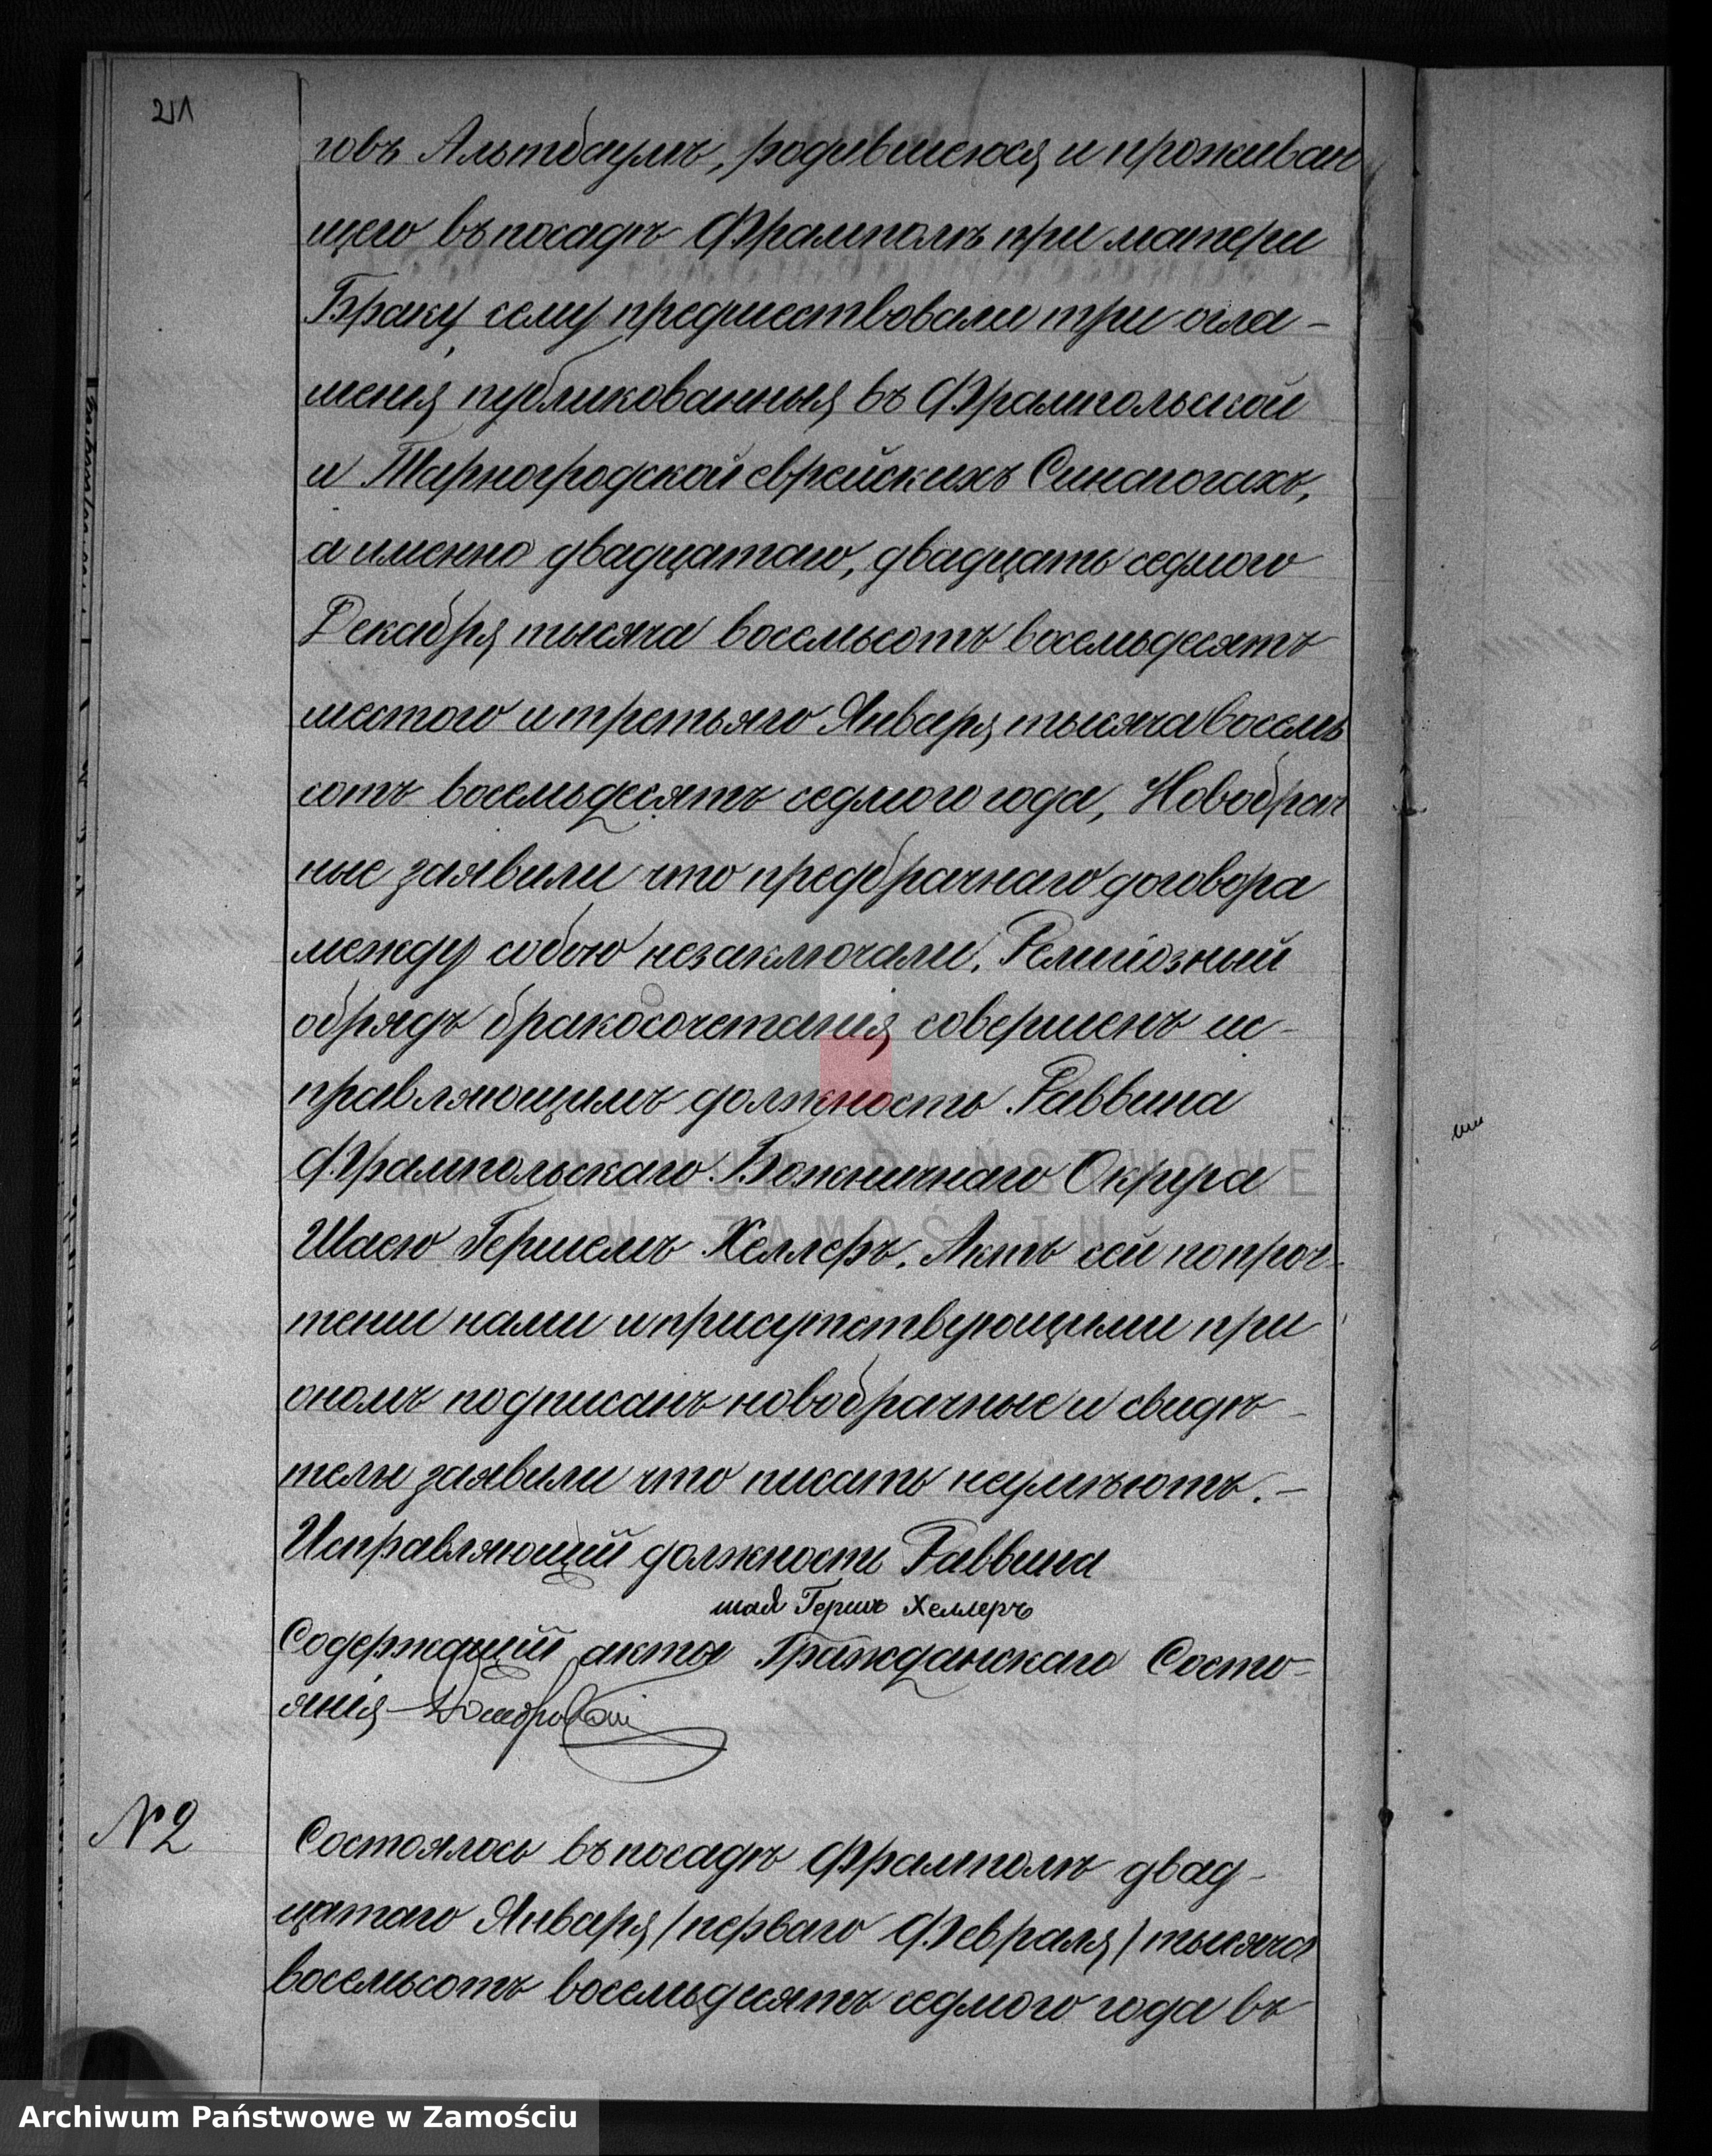 211
говъ Альтбаумъ, родившеюся и проживаю
щею въ посадѣ Фрамполѣ при матери
Браку сему предшествовали три огла-
шенія публикованныя въ Фрампольской
и Тарногродской еврейскихъ Синагогахъ,
а именно двадцатаго, двадцать седмого
Декабря тысяча восемьсотъ восемьдесятъ
шестого и третьяго Января тысяча восемь
сотъ восемьдесятъ седмого года, Новобрач
ные заявили что предбрачнаго договора
между собою незаключали. Религіозный
обрядъ бракосочетанія совершенъ ис-
правляющимъ должность Раввина
Фрампольскаго Божничнаго Округа
Шаею Гершемъ Хеллеръ. Актъ сей по проч-
тении нами и присутствующими при
ономъ подписанъ новобрачные и свидѣ-
тели заявили что писать неумѣютъ. -
Исправляющій должность Раввина
шая Гершъ Хеллеръ
Содержащій акты Гражданскаго Состо-
янія - Домбровскій
N 2
Состоялось въ посадѣ Фрамполѣ двад-
цатаго Января /перваго Февраля/ тысяча
восемьсотъ восемьдесятъ седмого года въ
ARCHIWUM PAŃSTWOWE
W ZAMOŚCIU
Archiwum Państwowe w Zamościu